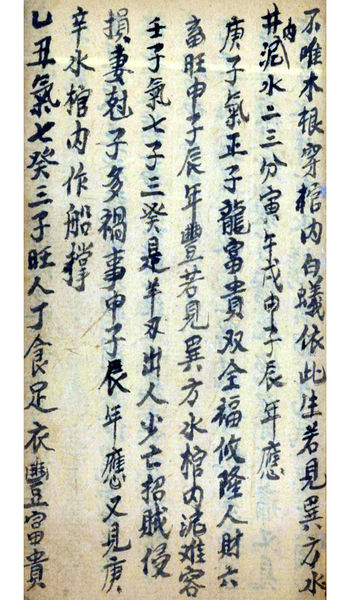 不唯木根穿棺内白蟻依此生若見異方水
井内泥水二三分寅午戌申子辰年應
庚子氣正子龍富貴双全福攸隆人財六
畜旺申子辰年豊若見異方水棺内泥难容
壬子氣七子三癸是羊刃出人少亡招賊侵
損妻尅子多禍事申子辰年應又見庚
辛水棺内作船撑
乙丑氣七癸三子旺人丁食足衣豊富貴